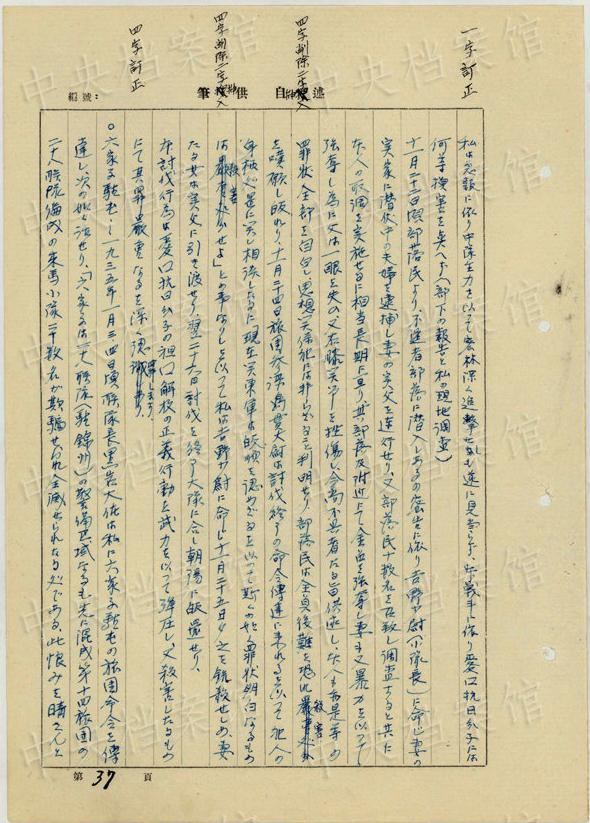 一字訂正
四字削除二字挿入
四字削除二字挿入
四字訂正
編號：
筆供自述
私は急報に依り中隊主力を以て密林深く進撃せしも遂に見当らず、
何等損害を与へず（部下の報告と私の現地調査）
十一月二十二日頃部落民より、不逞者部落に潜入しあるの密告に依り吉野少尉（小隊長）に命じ妻の
実家に潜伏中の夫婦を逮捕し妻の実父を連行せり、又部落民十数名を召致し調査すると共に
本人の取調を実施せるに相当長期に亘り其部落及附近にて金品を強奪し妻も又暴力を以て
強奪し為に父は一眼を失ひ又右膝
罪状全部を自白し思想 関係犯には非らざること判明せり、部落民は全員後難を恐れ
を嘆願し帰れり、十一月二十四日旅団参謀 大尉は討伐終了の命令傳達に来れるを以て犯人の
処置に関し相談したるに現在関東軍は帰順を認めざるを以て斯くの如く罪状明白なるもの
は厳重処分せよ」との事なりしを以て私は吉野少尉に命じ十一月二十五日夕之を銃殺せしめ、妻
たる女は実父に引き渡せり、翌二十六日討伐を終了大隊に合し朝陽に帰還せり、
本討伐行為は愛国抗日分子の祖国解放の正義行動を武力を以て弾圧し又殺害したるもの
にて其罪嚴重なるを深く認識します。
○六家子駐屯：一九三五年一月三四日頃聯隊長黒岩大佐は私に六家子駐屯の旅団命令を傳
達し次の如く注せり、「六家子は二八聯隊（駐錦州）の警備区域なるも先に混成第十四旅団の
二十八聯隊編成の乗馬小隊二十数名が欺騙せられ全滅せられたる処である、此恨みを晴さんと
第37頁